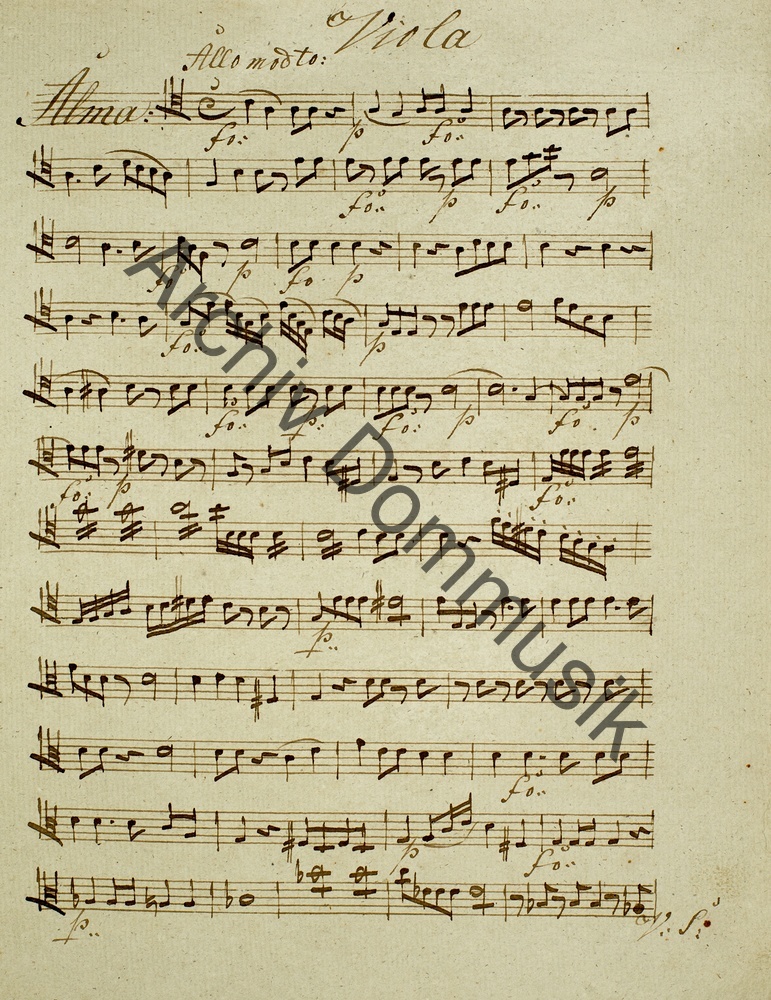 Viola
Allo modto:
Alma:
fo: p fo:
fo: p fo: p
fo: p fo p
fo: p
fo: p: fo: p fo. p
fo: p fo:
p:
fo:
p fo:
p:
V: S:
Archiv Dommusik